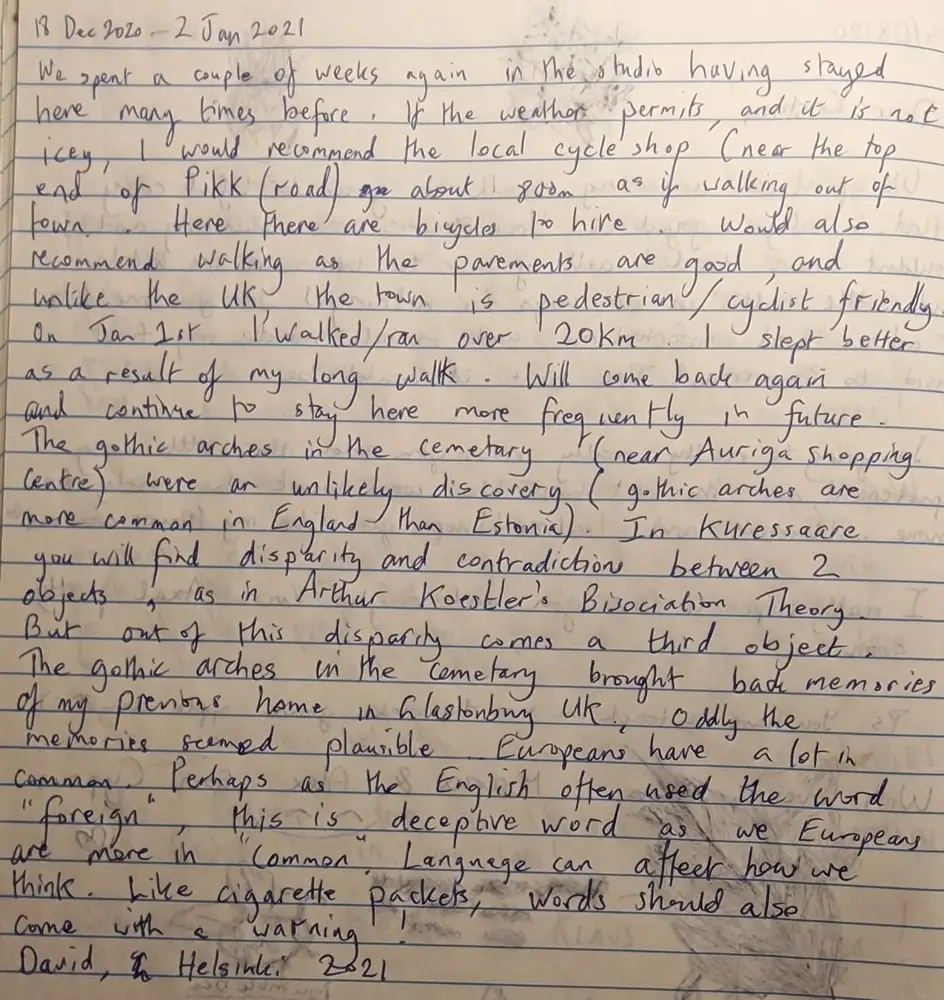 18 Dec 2020 - 2 Jan 2021
We spent a couple of weeks again in the studio having stayed
here many times before. If the weather permits, and it is not
icey, I would recommend the local cycle shop (near the top
end of Pikk (road) about 800m as if walking out of
town. Here there are bicycles to hire. Would also
recommend walking as the pavements are good, and
unlike the UK, the town is pedestrian/cyclist friendly.
On Jan 1st I walked/ran over 20km. I slept better
as a result of my long walk. Will come back again
and continue to stay here more frequently in future.
The gothic arches in the cemetary (near Auriga shopping
Centre) were an unlikely discovery (gothic arches are
more common in England than Estonia). In Kuressaare
you will find disparity and contradiction between 2
objects, as in Arthur Koestler's Bisociation Theory.
But out of this disparity comes a third object.
The gothic arches in the cemetary brought back memories
of my previous home in Glastonbury UK. Oddly the
memories seemed plausible. Europeans have a lot in
common. Perhaps as the English often used the word
"foreign", this is deceptive word as we Europeans
are more in "common". Language can affect how we
think. Like cigarette packets, words should also
come with a warning!
David, Helsinki 2021